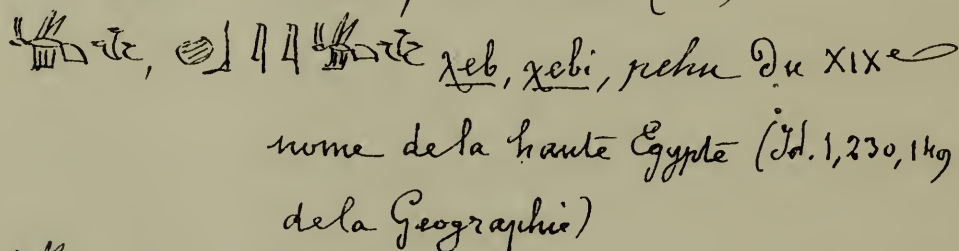 χeb, χebi, pehu du XIXe
nome de la haute Égypte (Id. 1, 230, 149
de la Geographie)